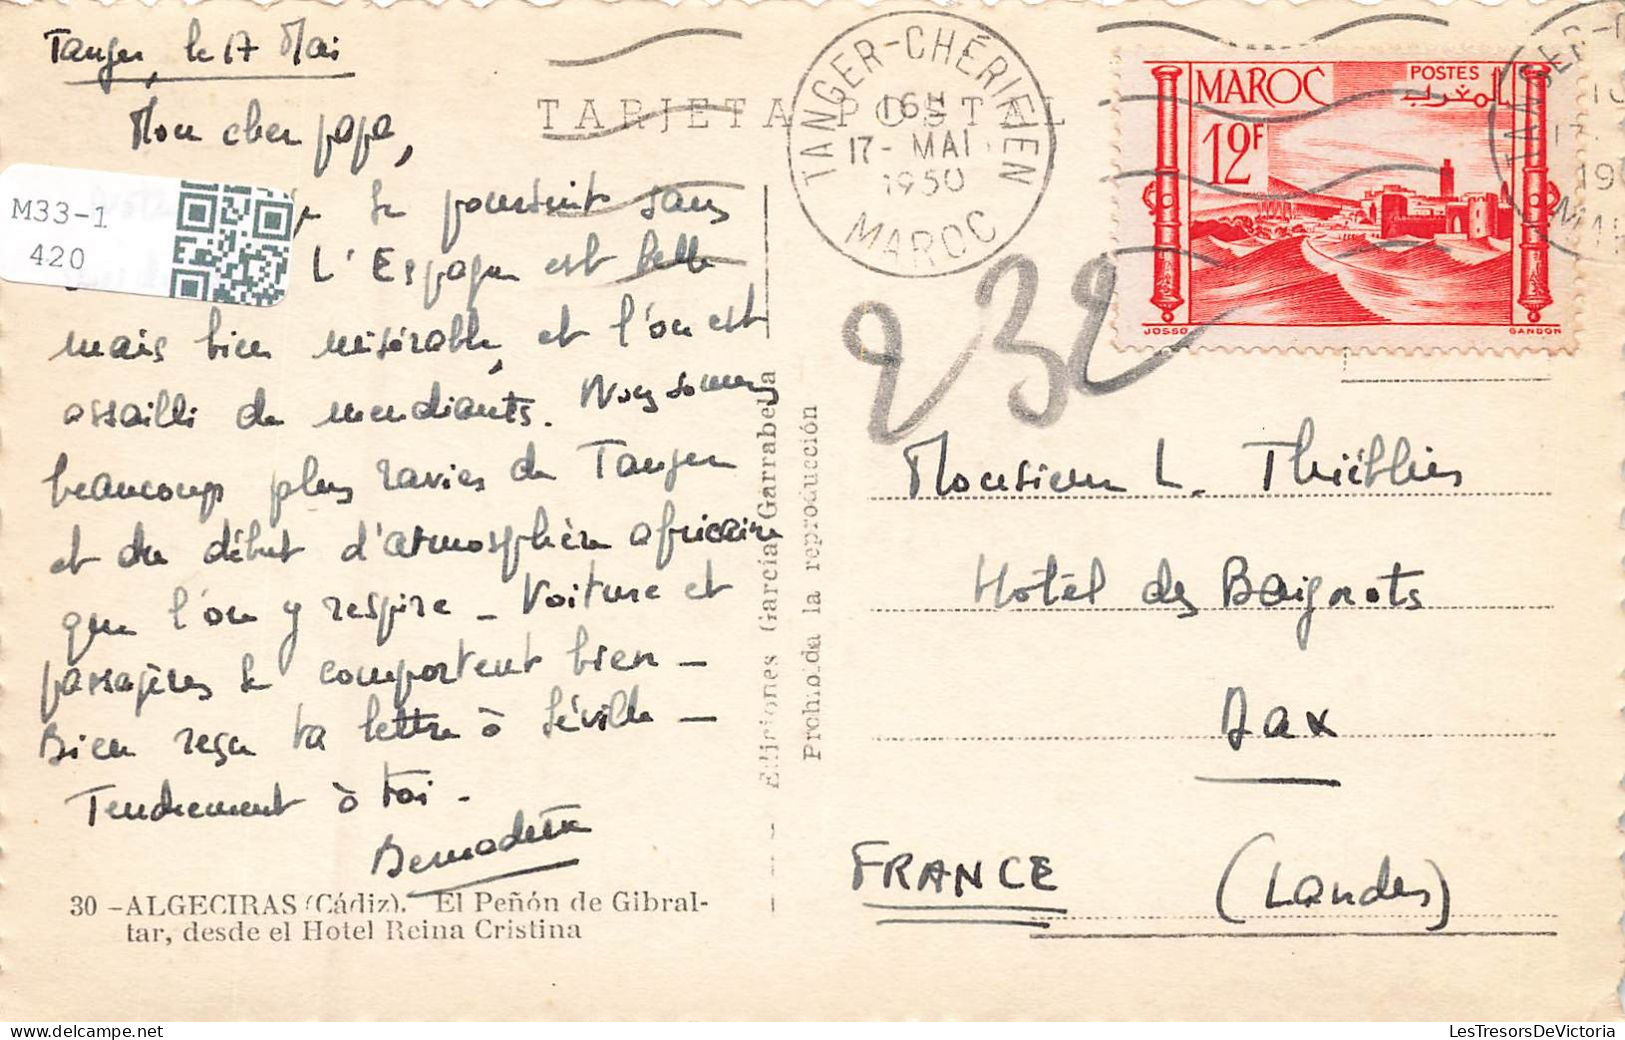 Tanger, le 17 Mai
Mon cher papa,
se poursuit sans
L'Espagne est belle
mais bien misérable, et l'on est
assailli de mendiants. Nous sommes
beaucoup plus ravies de Tanger
et du début d'atmosphère africaine
que l'on y respire - Voiture et
passagères se comportent bien -
Bien reçu ta lettre à Séville -
Tendrement à toi -
Bernadette
30 - ALGECIRAS (Cádiz). El Peñón de Gibral-
tar, desde el Hotel Reina Cristina
M33-1
420
TARJETA POSTAL
Ediciones García Garrabella
Prohibida la reproducción
TANGER-CHÉRIFIEN
16H
17-MAI
1950
MAROC
MAROC
POSTES
المغرب
12F
JOSSO
GANDON
232
Monsieur L.
Hotel des Baignots
Dax
FRANCE
(Landes)
LesTresorsDeVictoria